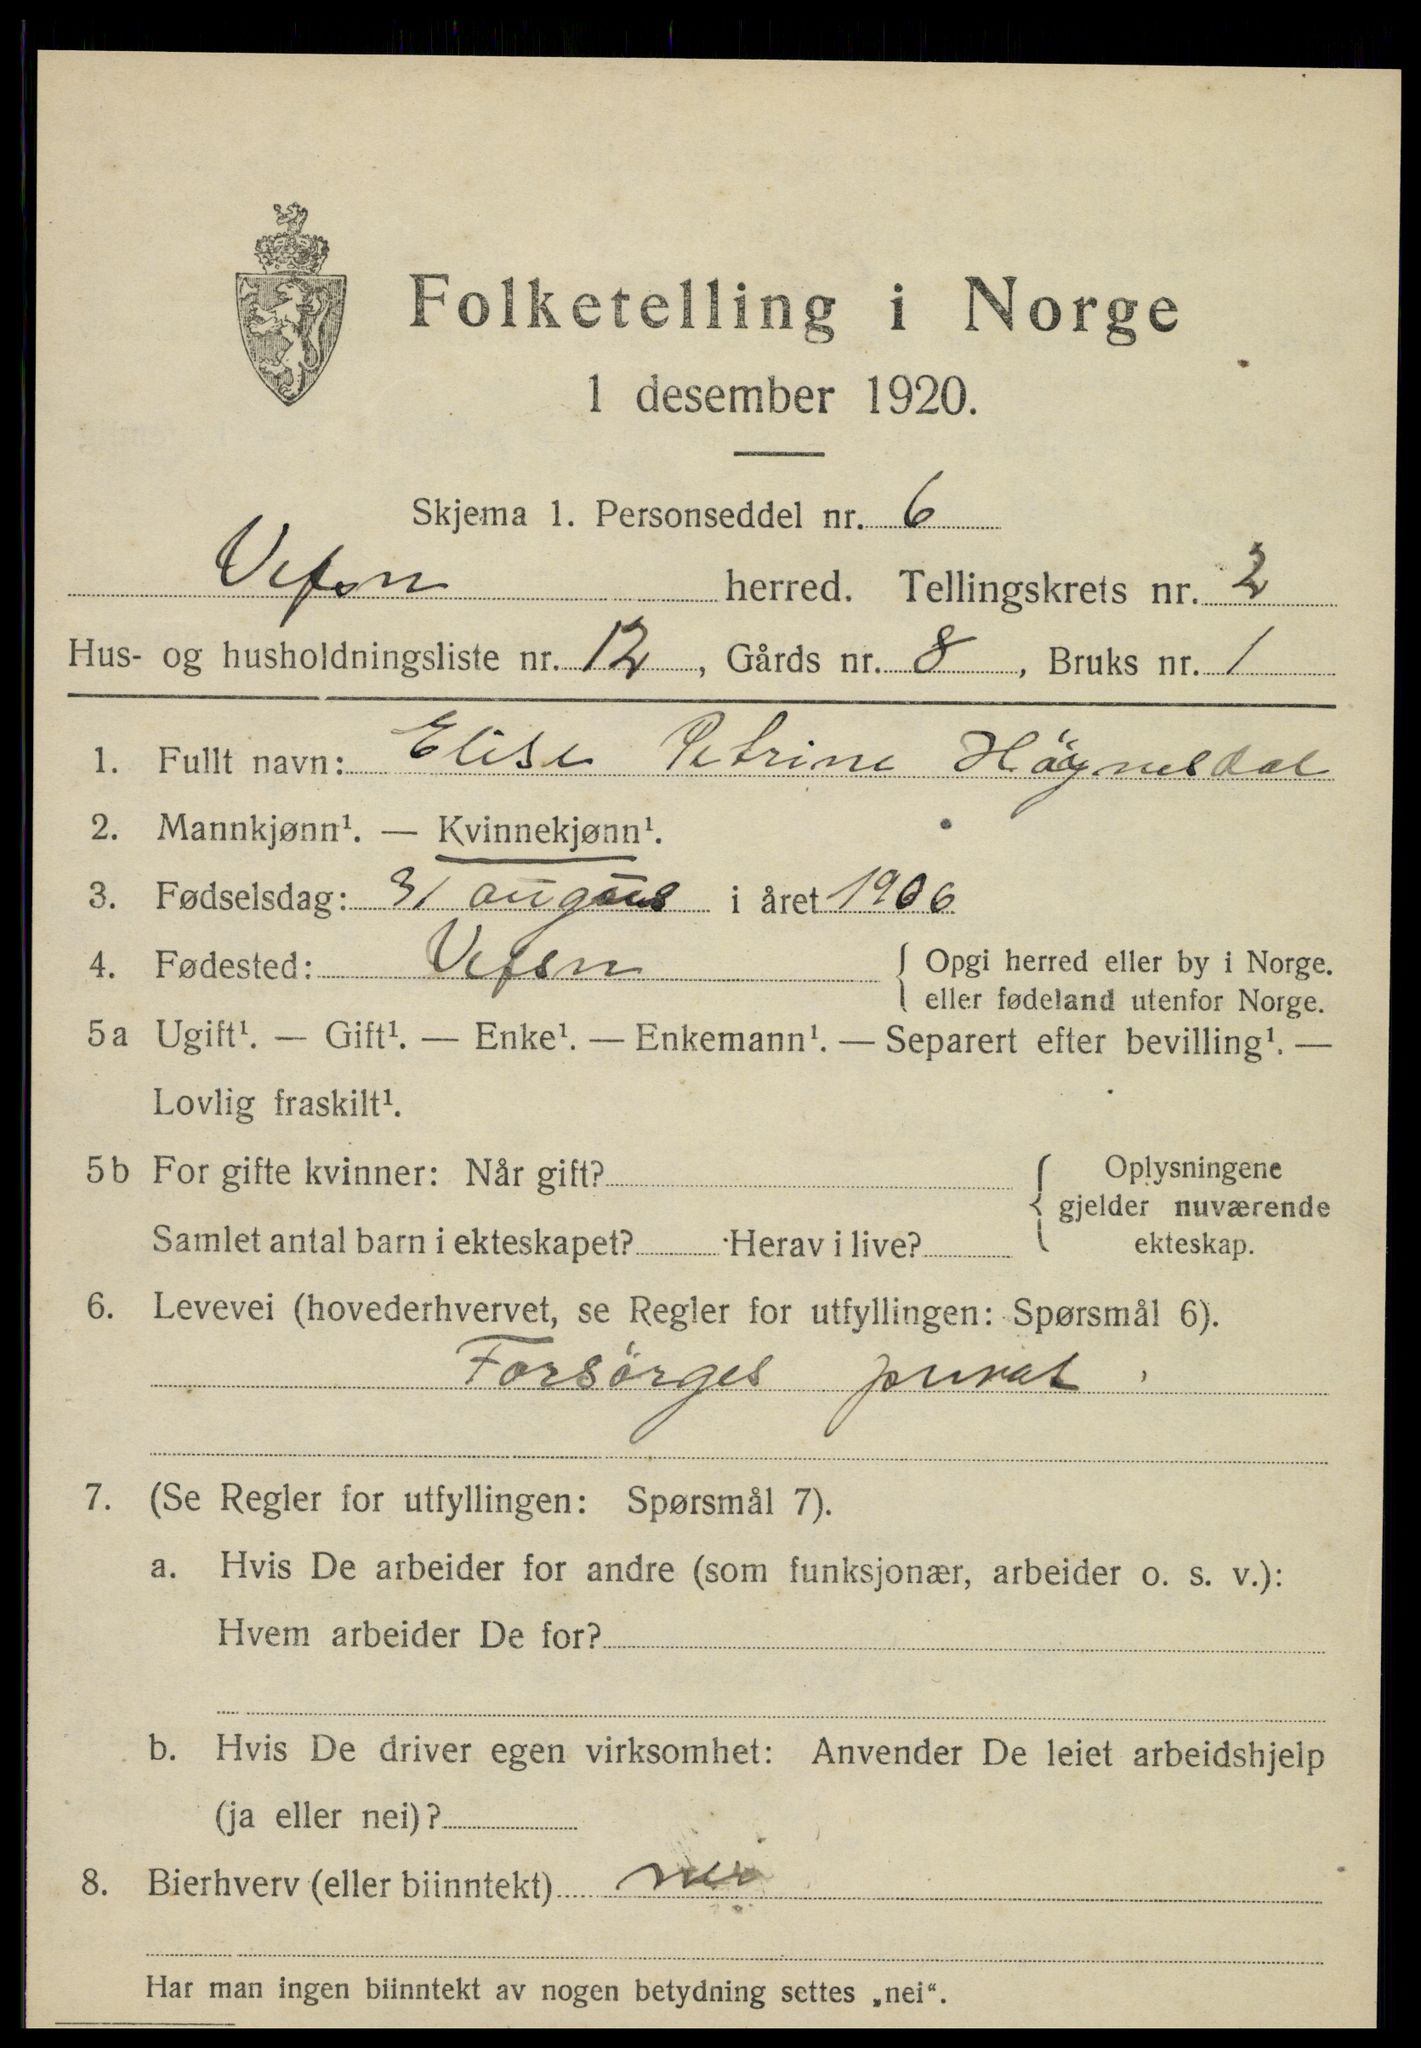 Folketelling i Norge
1 desember 1920.
Skjema 1. Personseddel nr. 6
Vefsn herred. Tellingskrets nr. 2
Hus- og husholdningsliste nr. 12, Gårds nr. 8, Bruks nr. 1
1. Fullt navn: Elise Petrine Höynesdal
2. Mannkjønn¹. — Kvinnekjønn¹.
3. Fødselsdag: 31 augus i året 1906
4. Fødested: Vefsn { Opgi herred eller by i Norge.
eller fødeland utenfor Norge.
5a Ugift¹. — Gift¹. — Enke¹. — Enkemann¹. — Separert efter bevilling¹. —
Lovlig fraskilt¹.
5b For gifte kvinner: Når gift? { Oplysningene
gjelder nuværende
Samlet antal barn i ekteskapet? Herav i live? ekteskap.
6. Levevei (hovederhvervet, se Regler for utfyllingen: Spørsmål 6).
Forsörges privat
7. (Se Regler for utfyllingen: Spørsmål 7).
a. Hvis De arbeider for andre (som funksjonær, arbeider o. s. v.):
Hvem arbeider De for?
b. Hvis De driver egen virksomhet: Anvender De leiet arbeidshjelp
(ja eller nei)?
8. Bierhverv (eller biinntekt) nei
Har man ingen biinntekt av nogen betydning settes „nei“.